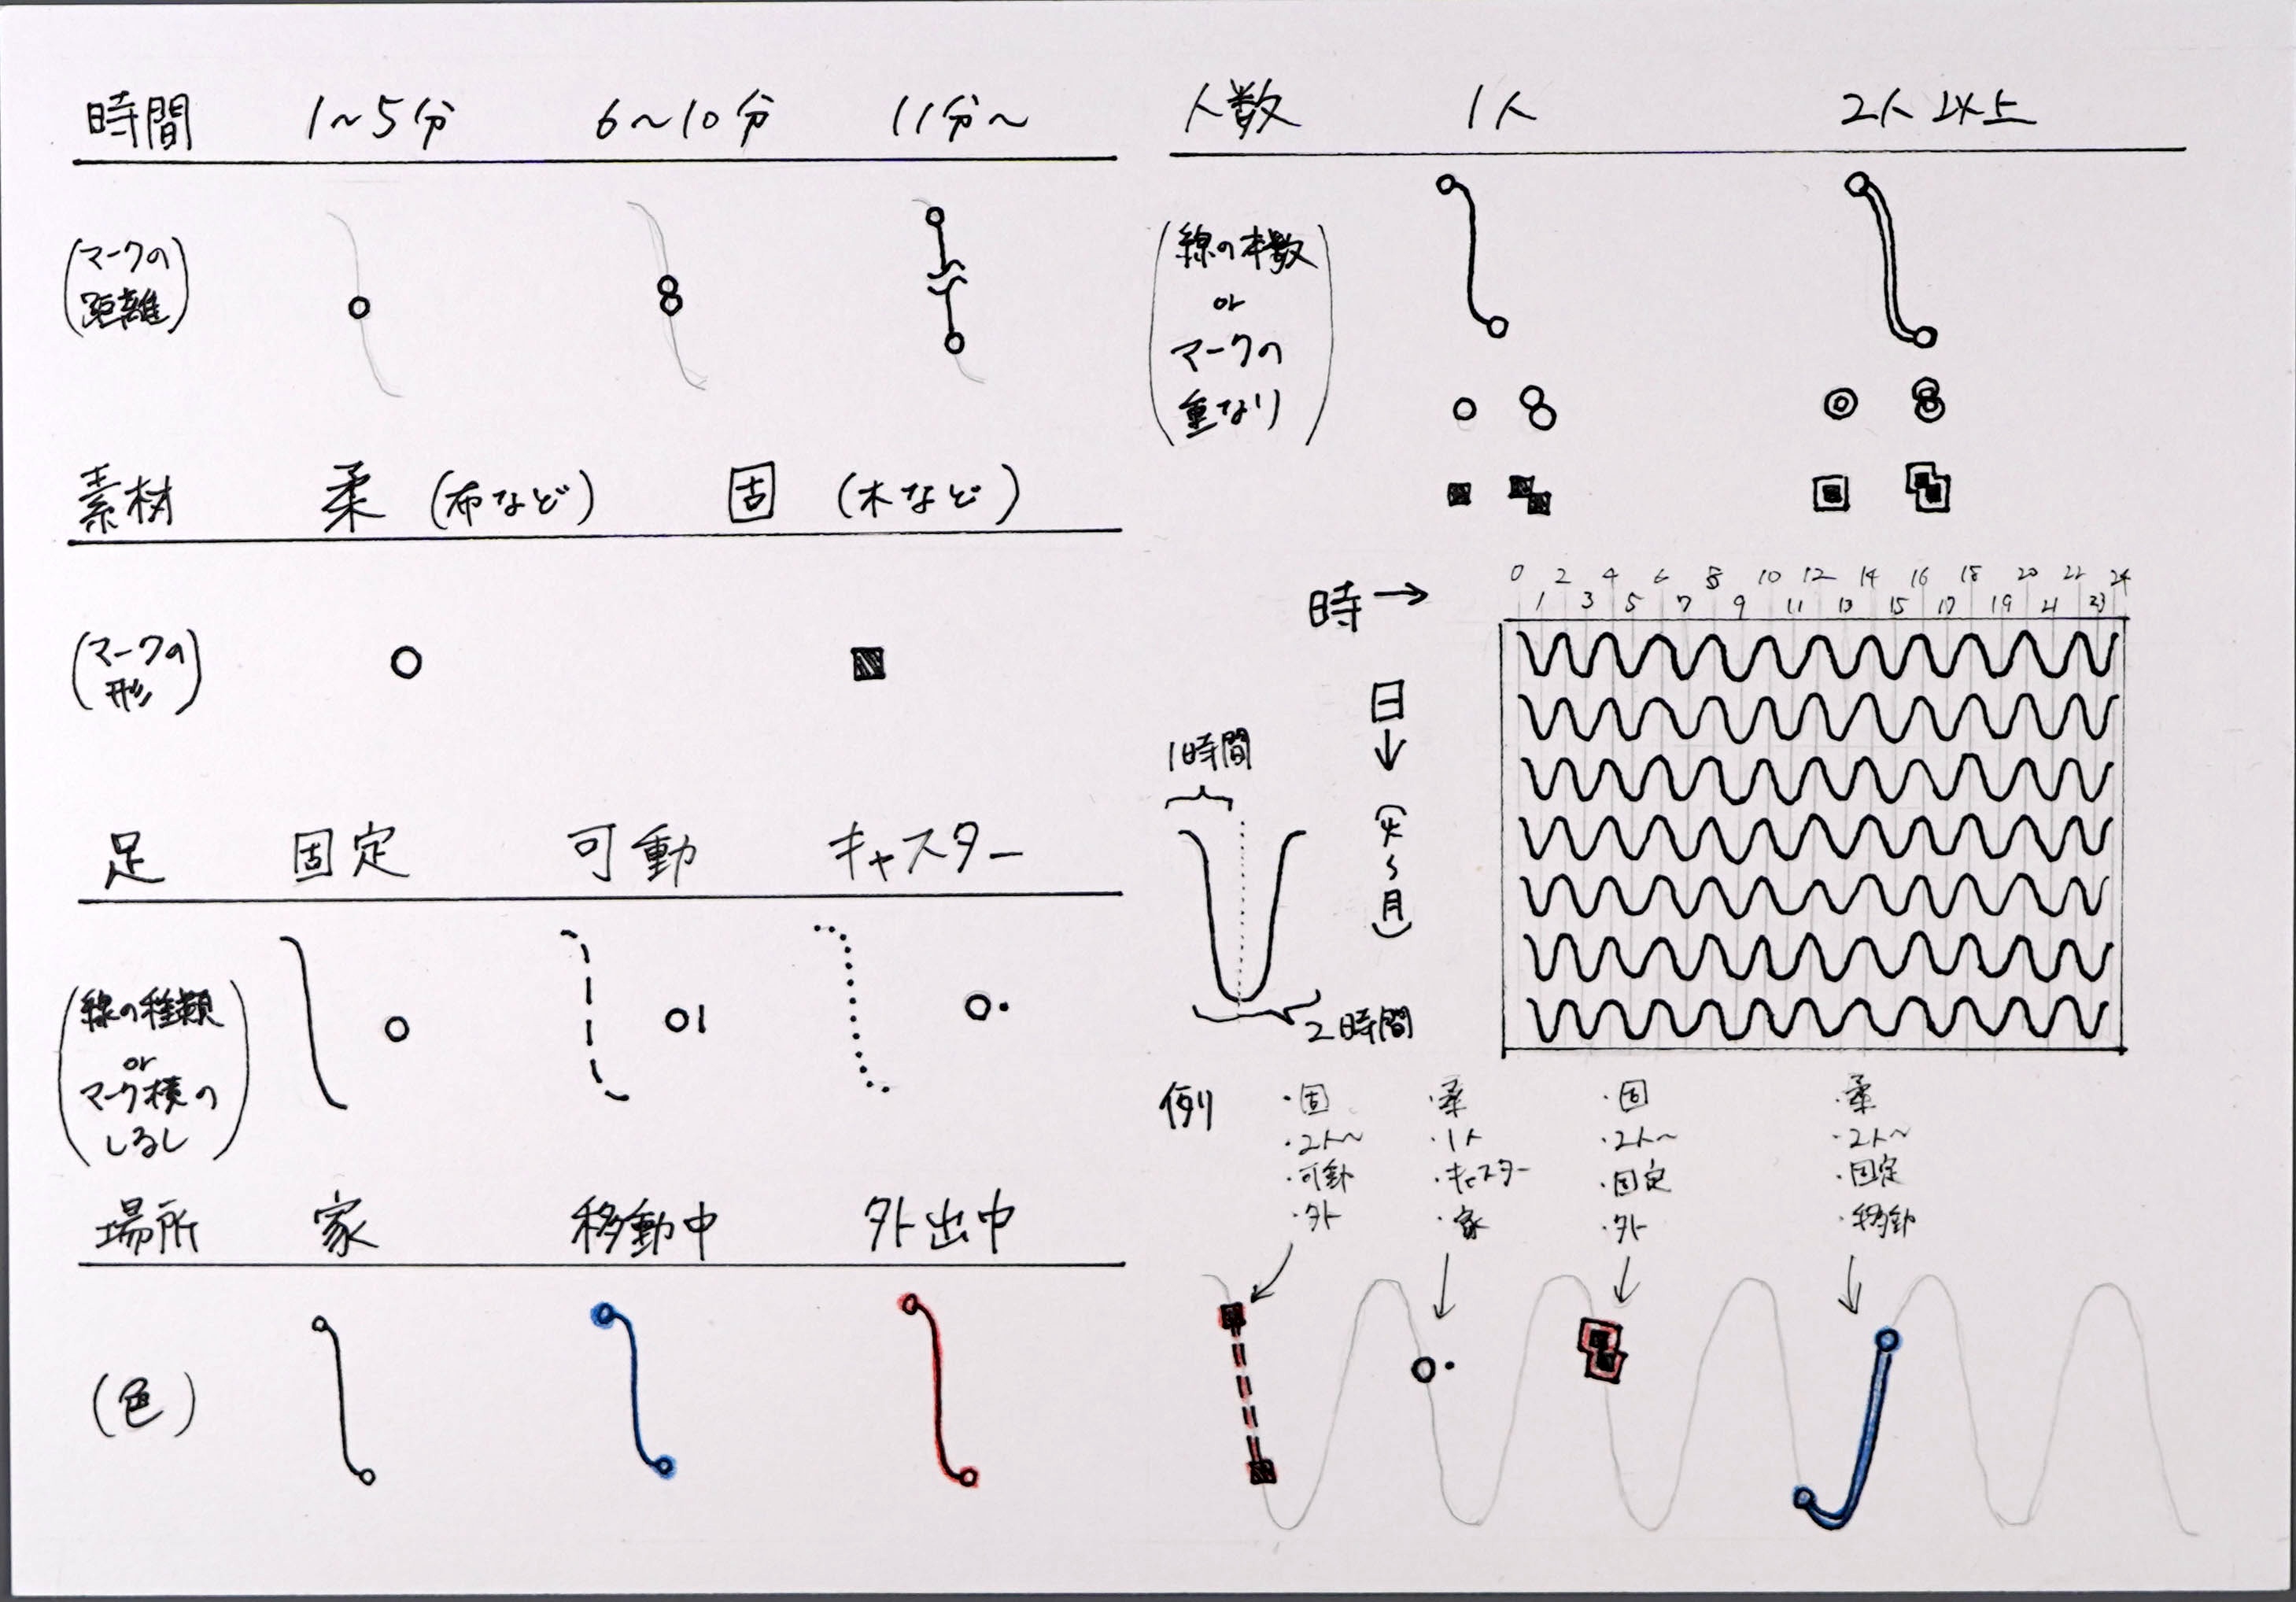 時間 1〜5分 6〜10分 11分〜
(マークの
距離)
素材 柔 (布など) 固 (木など)
(マークの
形)
足 固定 可動 キャスター
(線の種類
or
マーク横の
しるし)
場所 家 移動中 外出中
(色)
人数 1人 2人以上
(線の本数
or
マークの
重なり)
時→
0 2 4 6 8 10 12 14 16 18 20 22 24
1 3 5 7 9 11 13 15 17 19 21 23
日
↓
(火〜月)
1時間
2時間
例
・固
・2人〜
・可動
・外
・柔
・1人
・キャスター
・家
・固
・2人〜
・固定
・外
・柔
・2人〜
・固定
・移動